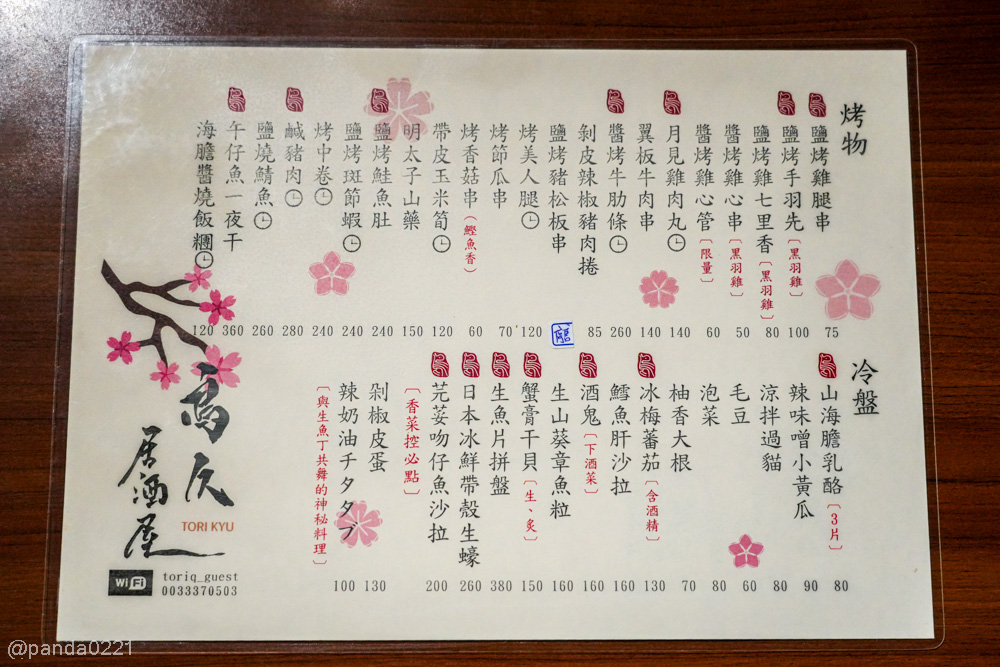 烤物
鹽烤雞腿串 75
鹽烤手羽先〔黑羽雞〕 100
鹽烤雞七里香〔黑羽雞〕 80
醬烤雞心串〔黑羽雞〕 50
醬烤雞心管〔限量〕 60
月見雞肉丸 140
翼板牛肉串 140
醬烤牛肋條 260
剝皮辣椒豬肉捲 85
鹽烤豬松板串
烤美人腿 120
烤節瓜串 70
烤香菇串(鰹魚香) 60
帶皮玉米筍 120
明太子山藥 150
鹽烤鮭魚肚 240
鹽烤斑節蝦 240
烤中卷 240
鹹豬肉 280
鹽燒鯖魚 260
午仔魚一夜干 360
海膽醬燒飯糰 120
冷盤
山海膽乳酪〔3片〕 80
辣味噌小黃瓜 90
涼拌過貓 80
毛豆 60
泡菜 80
柚香大根 70
冰梅蕃茄〔含酒精〕 130
鱈魚肝沙拉 160
酒鬼〔下酒菜〕 160
生山葵章魚粒 160
蟹膏干貝〔生、炙〕 150
生魚片拼盤 380
日本冰鮮帶殼生蠔 260
芫荽吻仔魚沙拉 200
〔香菜控必點〕
剁椒皮蛋 130
辣奶油チタタプ 100
〔與生魚丁共舞的神秘料理〕
鳥久
居酒屋
TORI KYU
WiFi
toriq_guest
0033370503
@panda0221